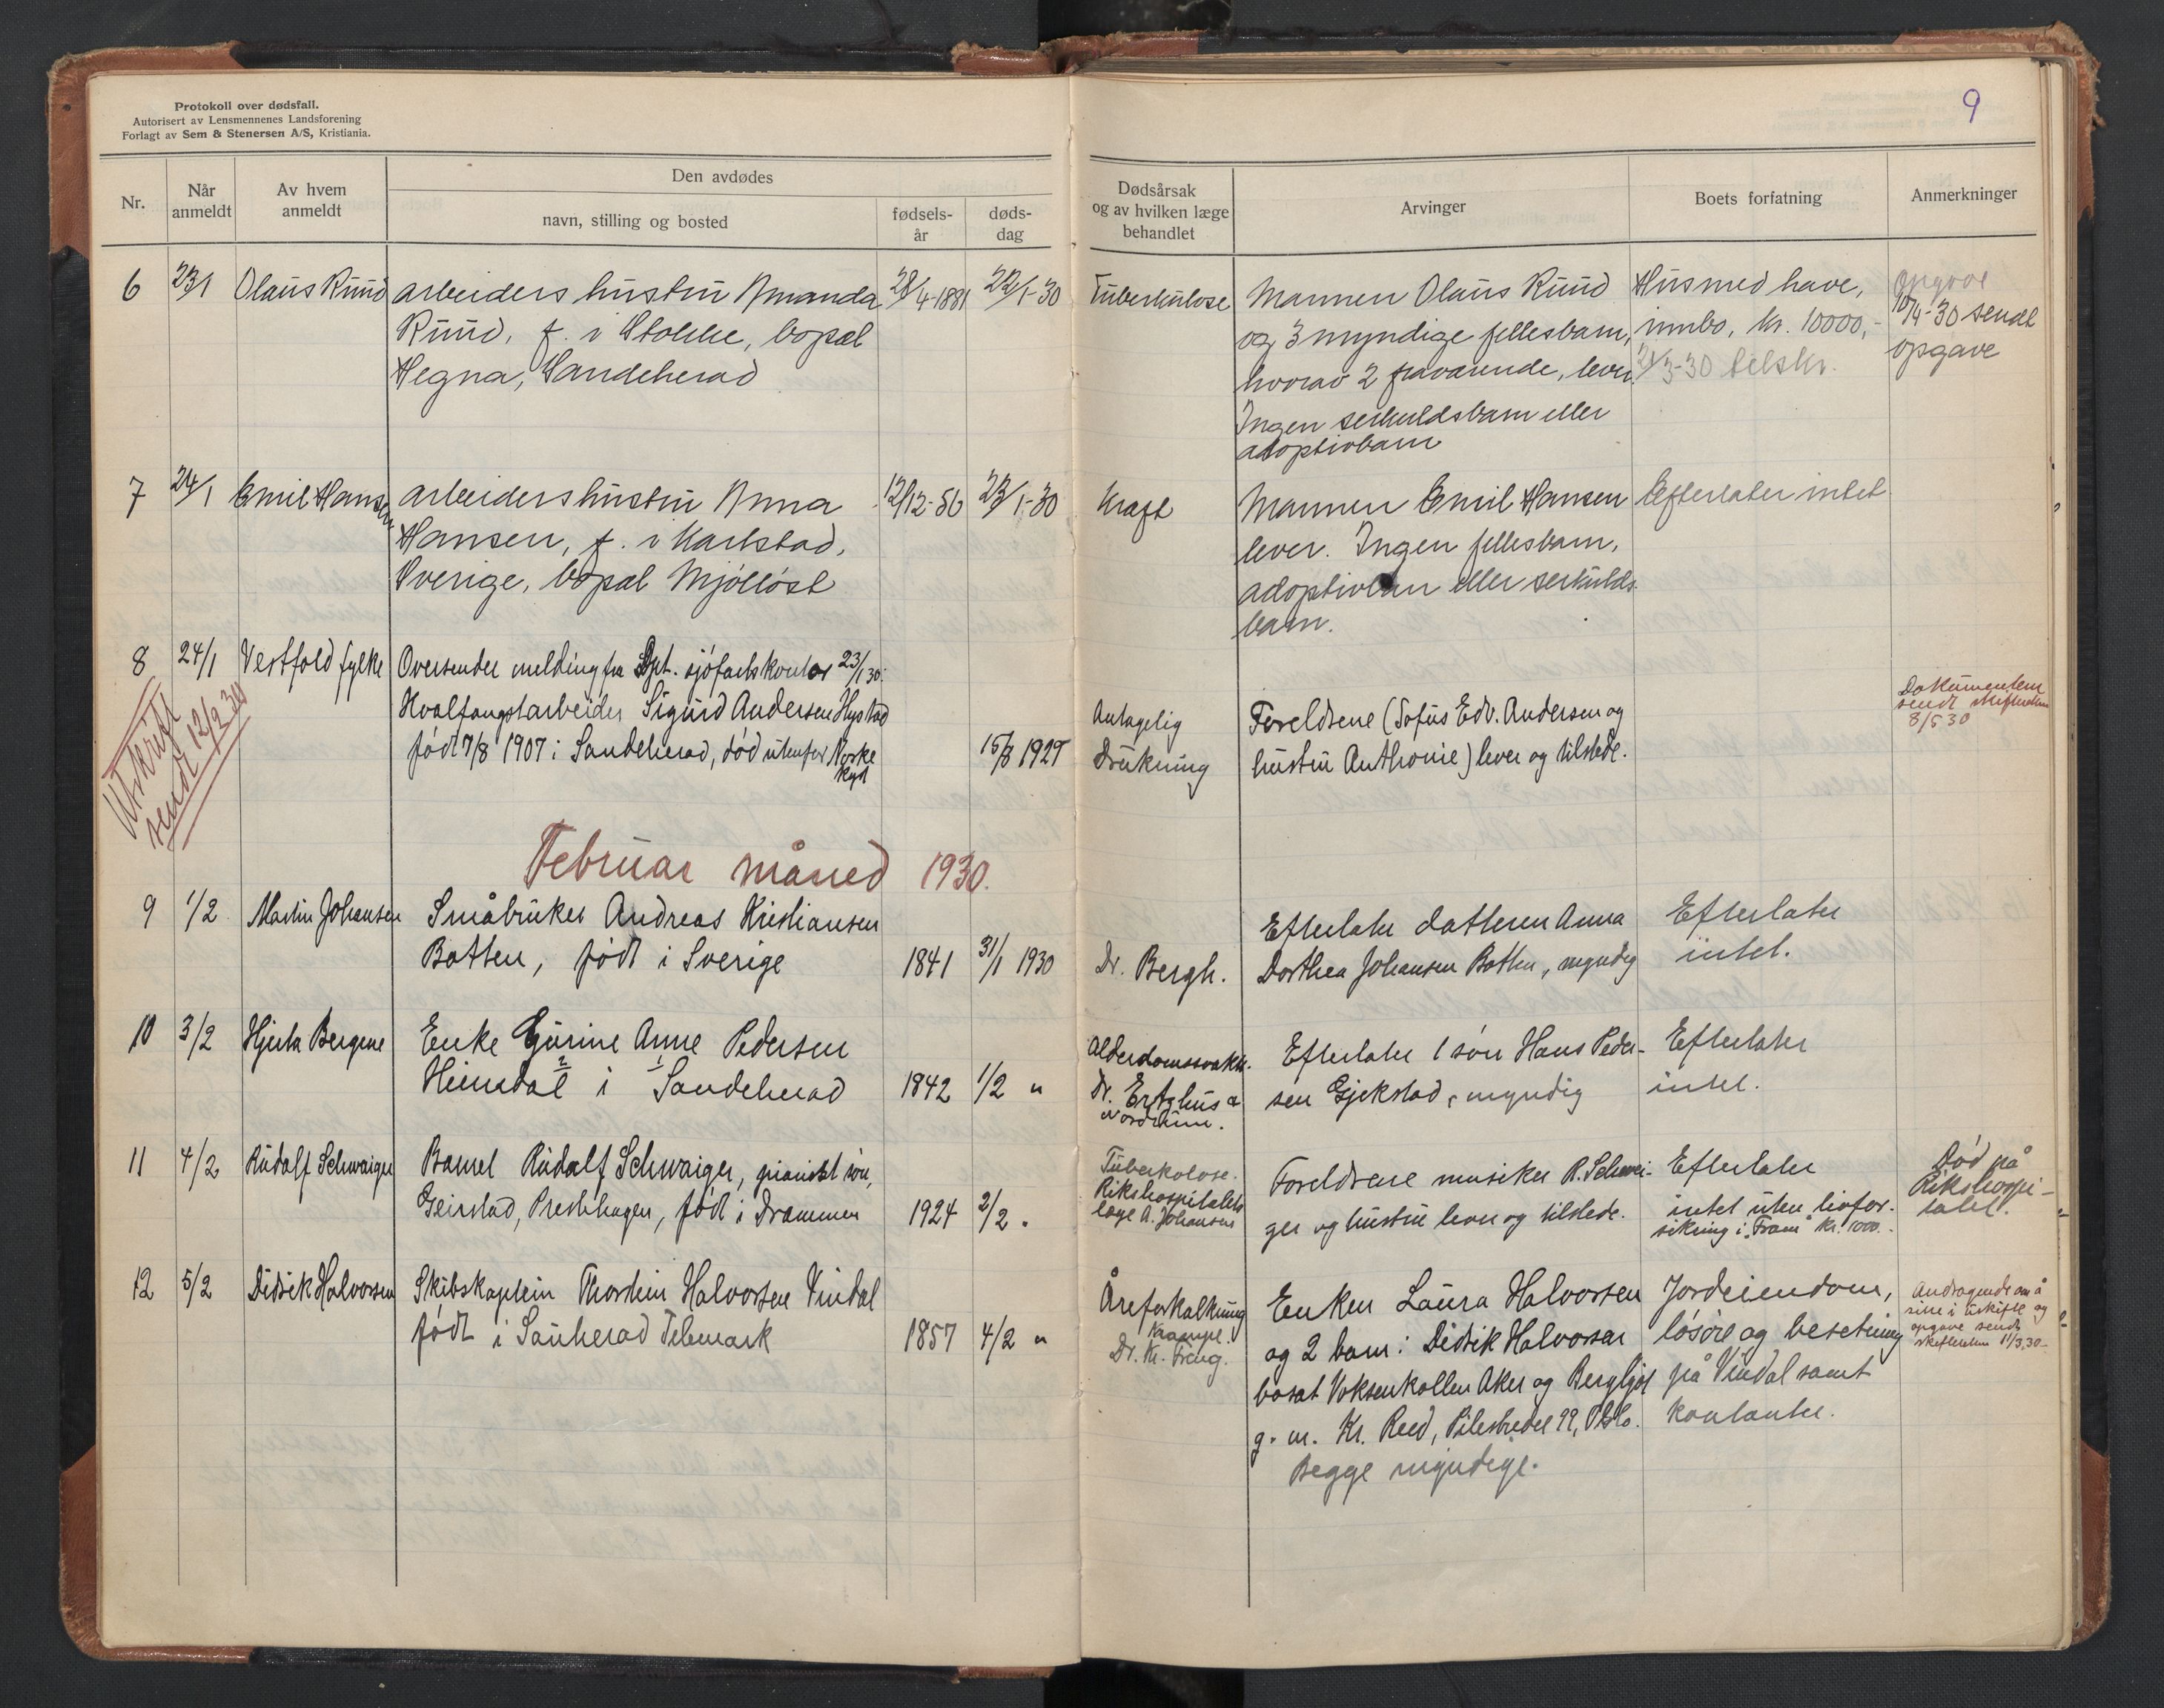 Protokoll over dødsfall.
Autorisert av Lensmennenes Landsforening
Forlagt av Sem & Stenersen A/S, Kristiania.
9
Nr.
Når anmeldt
Av hvem anmeldt
Den avdødes
navn, stilling og bosted
fødsels-år
døds-dag
Dødsårsak og av hvilken læge behandlet
Arvinger
Boets forfatning
Anmerkninger
6 23/1 Olaus Ruud arbeiders hustru Amanda 28/4-1881 22/1-30 Tuberkulose Mannen Olaus Ruud Hus med have, Opgave
Ruud, f. i Stokke, bopæl og 3 myndige fellesbarn, innbo, kr. 10000,- 10/4-30 sendt
Hegna, Sandeherad hvorav 2 fraværende, lever. 21/3-30 tilskr. opgave
Ingen serkuldsbarn eller
adoptivbarn
7 24/1 Emil Hansen arbeidershustru Anna 12/12-56 23/1-30 Kræft Mannen Emil Hansen Efterlater intet
Hansen, f. i Karlstad, lever. Ingen fellesbarn,
Sverige, bopæl Mjølløst adoptivbarn eller serkulds-
barn.
8 24/1 Vestfold fylke Oversender melding fra Dpt. sjøfartskontor 23/1 30.
Hvalfangstarbeider Sigurd Andersen Hystad Antagelig Foreldrene (Sofus Edv. Andersen og Dokumentene
født 7/8 1907 i Sandeherad, død utenfor Norske kyst 15/8 1929 Drukning hustru Anthonie) lever og tilstede. sendt skifteretten
8/5 30
Utskrift
sendt 12/2 30
Februar måned 1930.
9 1/2 Martin Johansen Småbruker Andreas Kristiansen Efterlater datteren Anna Efterlater
Botten, født i Sverige 1841 31/1 1930 Dr. Bergh. Dorthea Johansen Botten, myndig intet.
10 3/2 Hjerta Bergene Enke Gurine Anne Pedersen Alderdomssvakh. Efterlater 1 søn Hans Peder- Efterlater
Heimdal i Sandeherad 1842 1/2 " Dr. sen Gjekstad, myndig intet.
11 4/2 Rudolf Schwaiger Barnet Rudolf Schwaiger, pianist søn, Tuberkolose. Foreldrene musiker R. Schwai- Efterlater Død på
Geirstad, Presthagen, født i Drammen 1924 2/2 " Rikshospitalets ger og hustru lever og tilstede. intet uten livsfor- Rikshospi-
læge A. Johansen sikring i "Fram" kr. 1000.- talet.
12 5/2 Didrik Halvorsen Skibskaptein Thorstein Halvorsen Vindal Åreforkalkning Enken Laura Halvorsen Jordeiendom, Andragende om å
født i Sauherad Telemark 1857 4/2 " Krampe. og 2 barn: Didrik Halvorsen løsøre og besetning sitte i uskifte og
Dr. Kr. Freng. bosat Voksenkollen Aker og Bergljot på Vindal samt opgave sendt
g. m. Kr. Reed, Pilestredet 99, Oslo. kontanter. skifteretten 11/3 30-
Begge myndige.